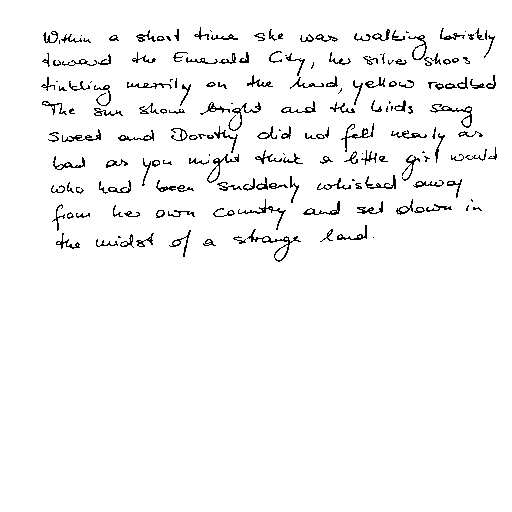 Within a short time she was walking briskly
toward the Emerald City, her silver shoes
tinkling merrily on the hard, yellow roadbed
The sun shone bright and the birds sang
sweet and Dorothy did not fell nearly as
bad as you might think a little girl would
who had been suddenly whisked away
from her own country and set down in
the midst of a strange land.